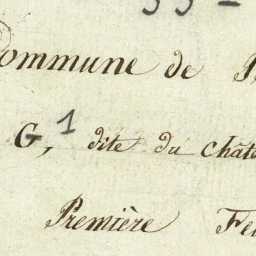 ommune de
G, 1 dite du Chât
Première Fe